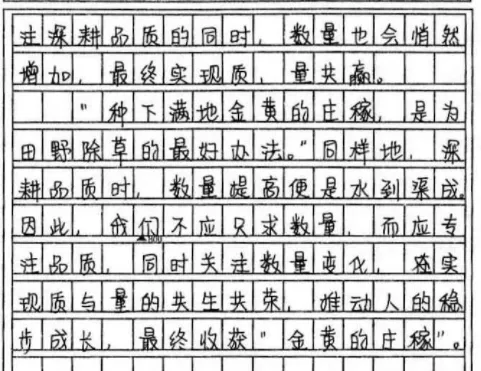 注深耕品质的同时，数量也会悄然
增加，最终实现质、量共赢。
"种下满地金黄的庄稼，是为
田野除草的最好办法。"同样地，深
耕品质时，数量提高便是水到渠成。
因此，我们不应只求数量，而应专
注品质，同时关注数量变化，在实
现质与量的共生共荣，推动人的稳
步成长，最终收获"金黄的庄稼"。